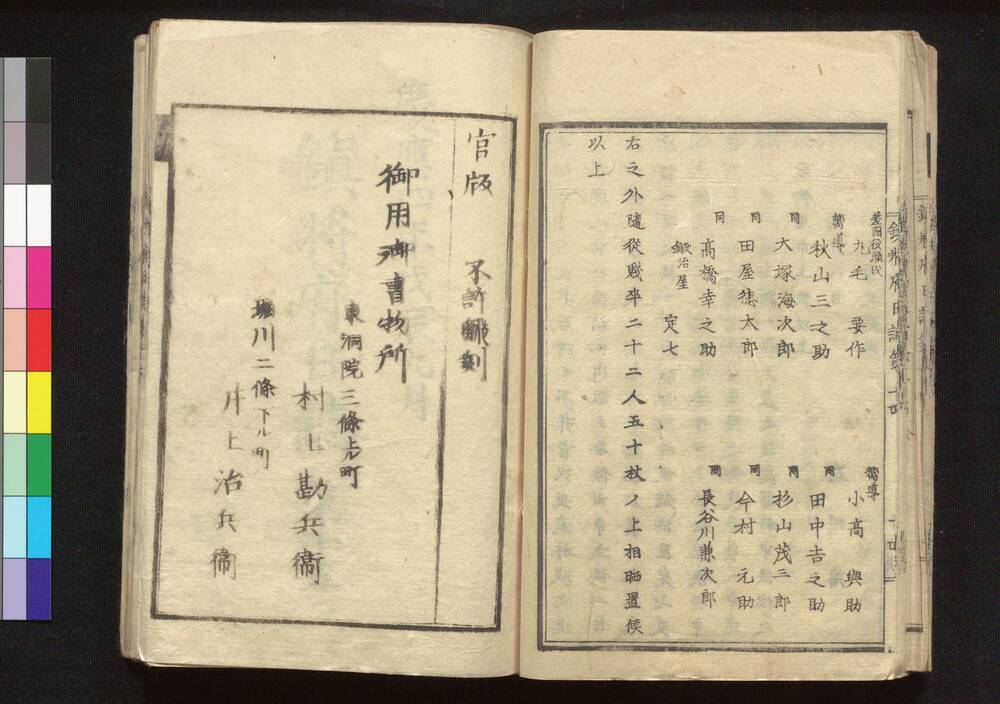 差図役頭取
丸毛 要作
嚮導
小高 與助
嚮導
秋山三之助
同
田中吉之助
同
大塚海次郎
同
杉山茂三郎
同
田屋徳太郎
同
今村 元助
同
髙橋幸之助
同
長谷川兼次郎
鍛冶屋
定七
右之外隨從賤卒二十二人五十杖ノ上相晒置候
以上
官版 不許翻刻
御用御書物所
東洞院三條上ル町
村上勘兵衞
堀川二條下ル町
井上治兵衞